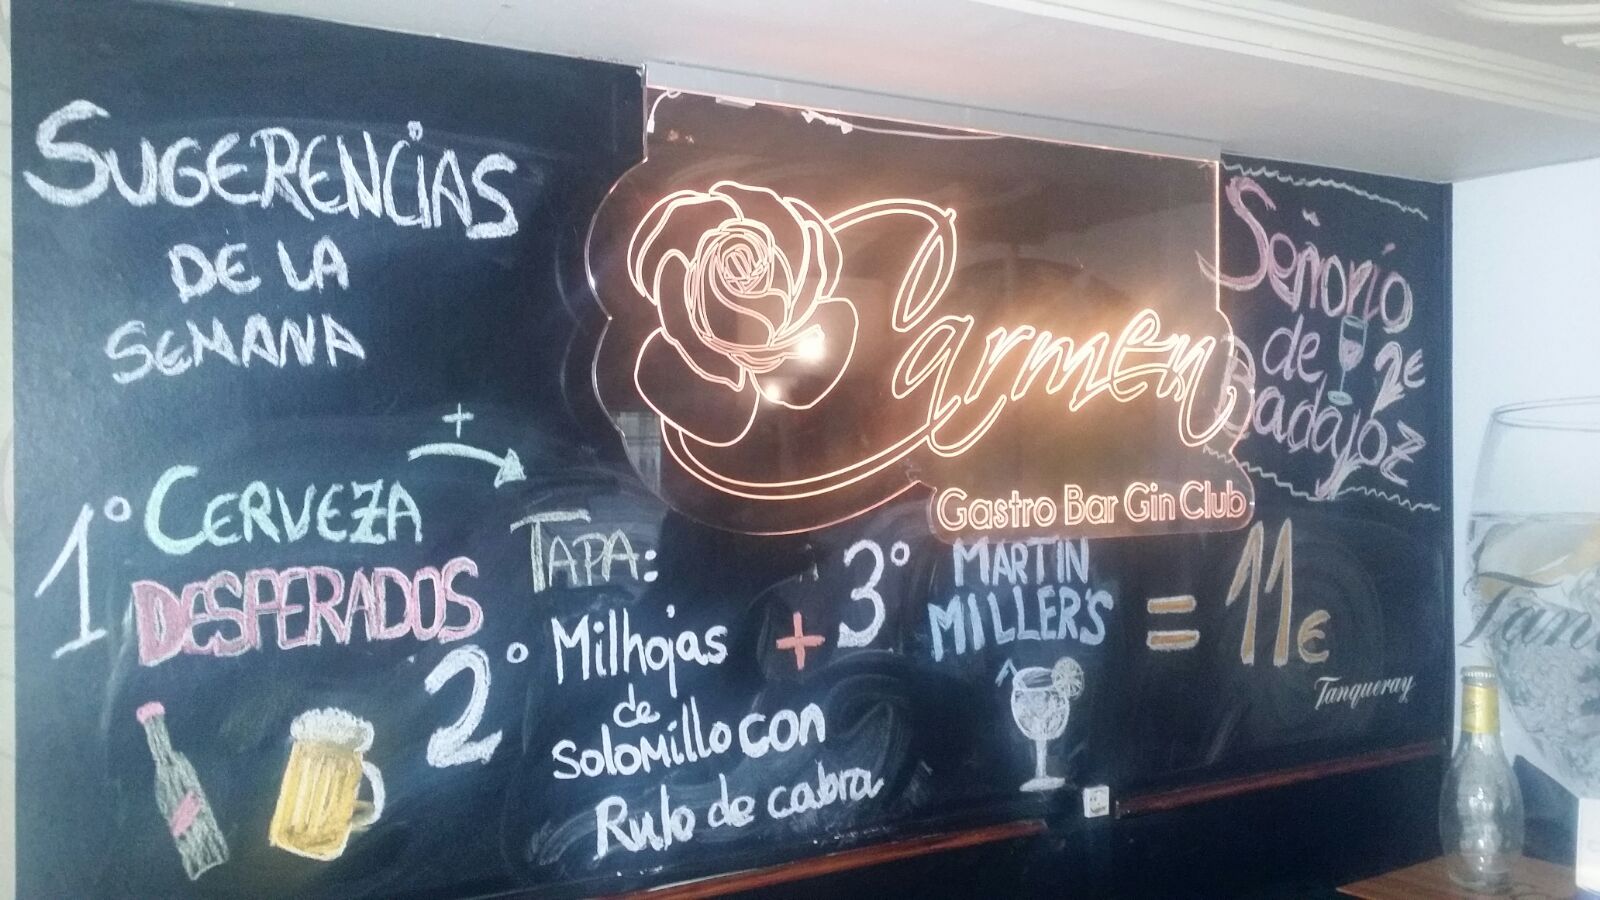 SUGERENCIAS
DE LA
SEMANA
Carmen
Gastro Bar Gin Club
Señorío
de
Badajoz
2€
1º CERVEZA
DESPERADOS
+
2º TAPA:
Milhojas
de
Solomillo con
Rulo de cabra
+ 3º MARTIN
MILLER'S
= 11€
Tanqueray